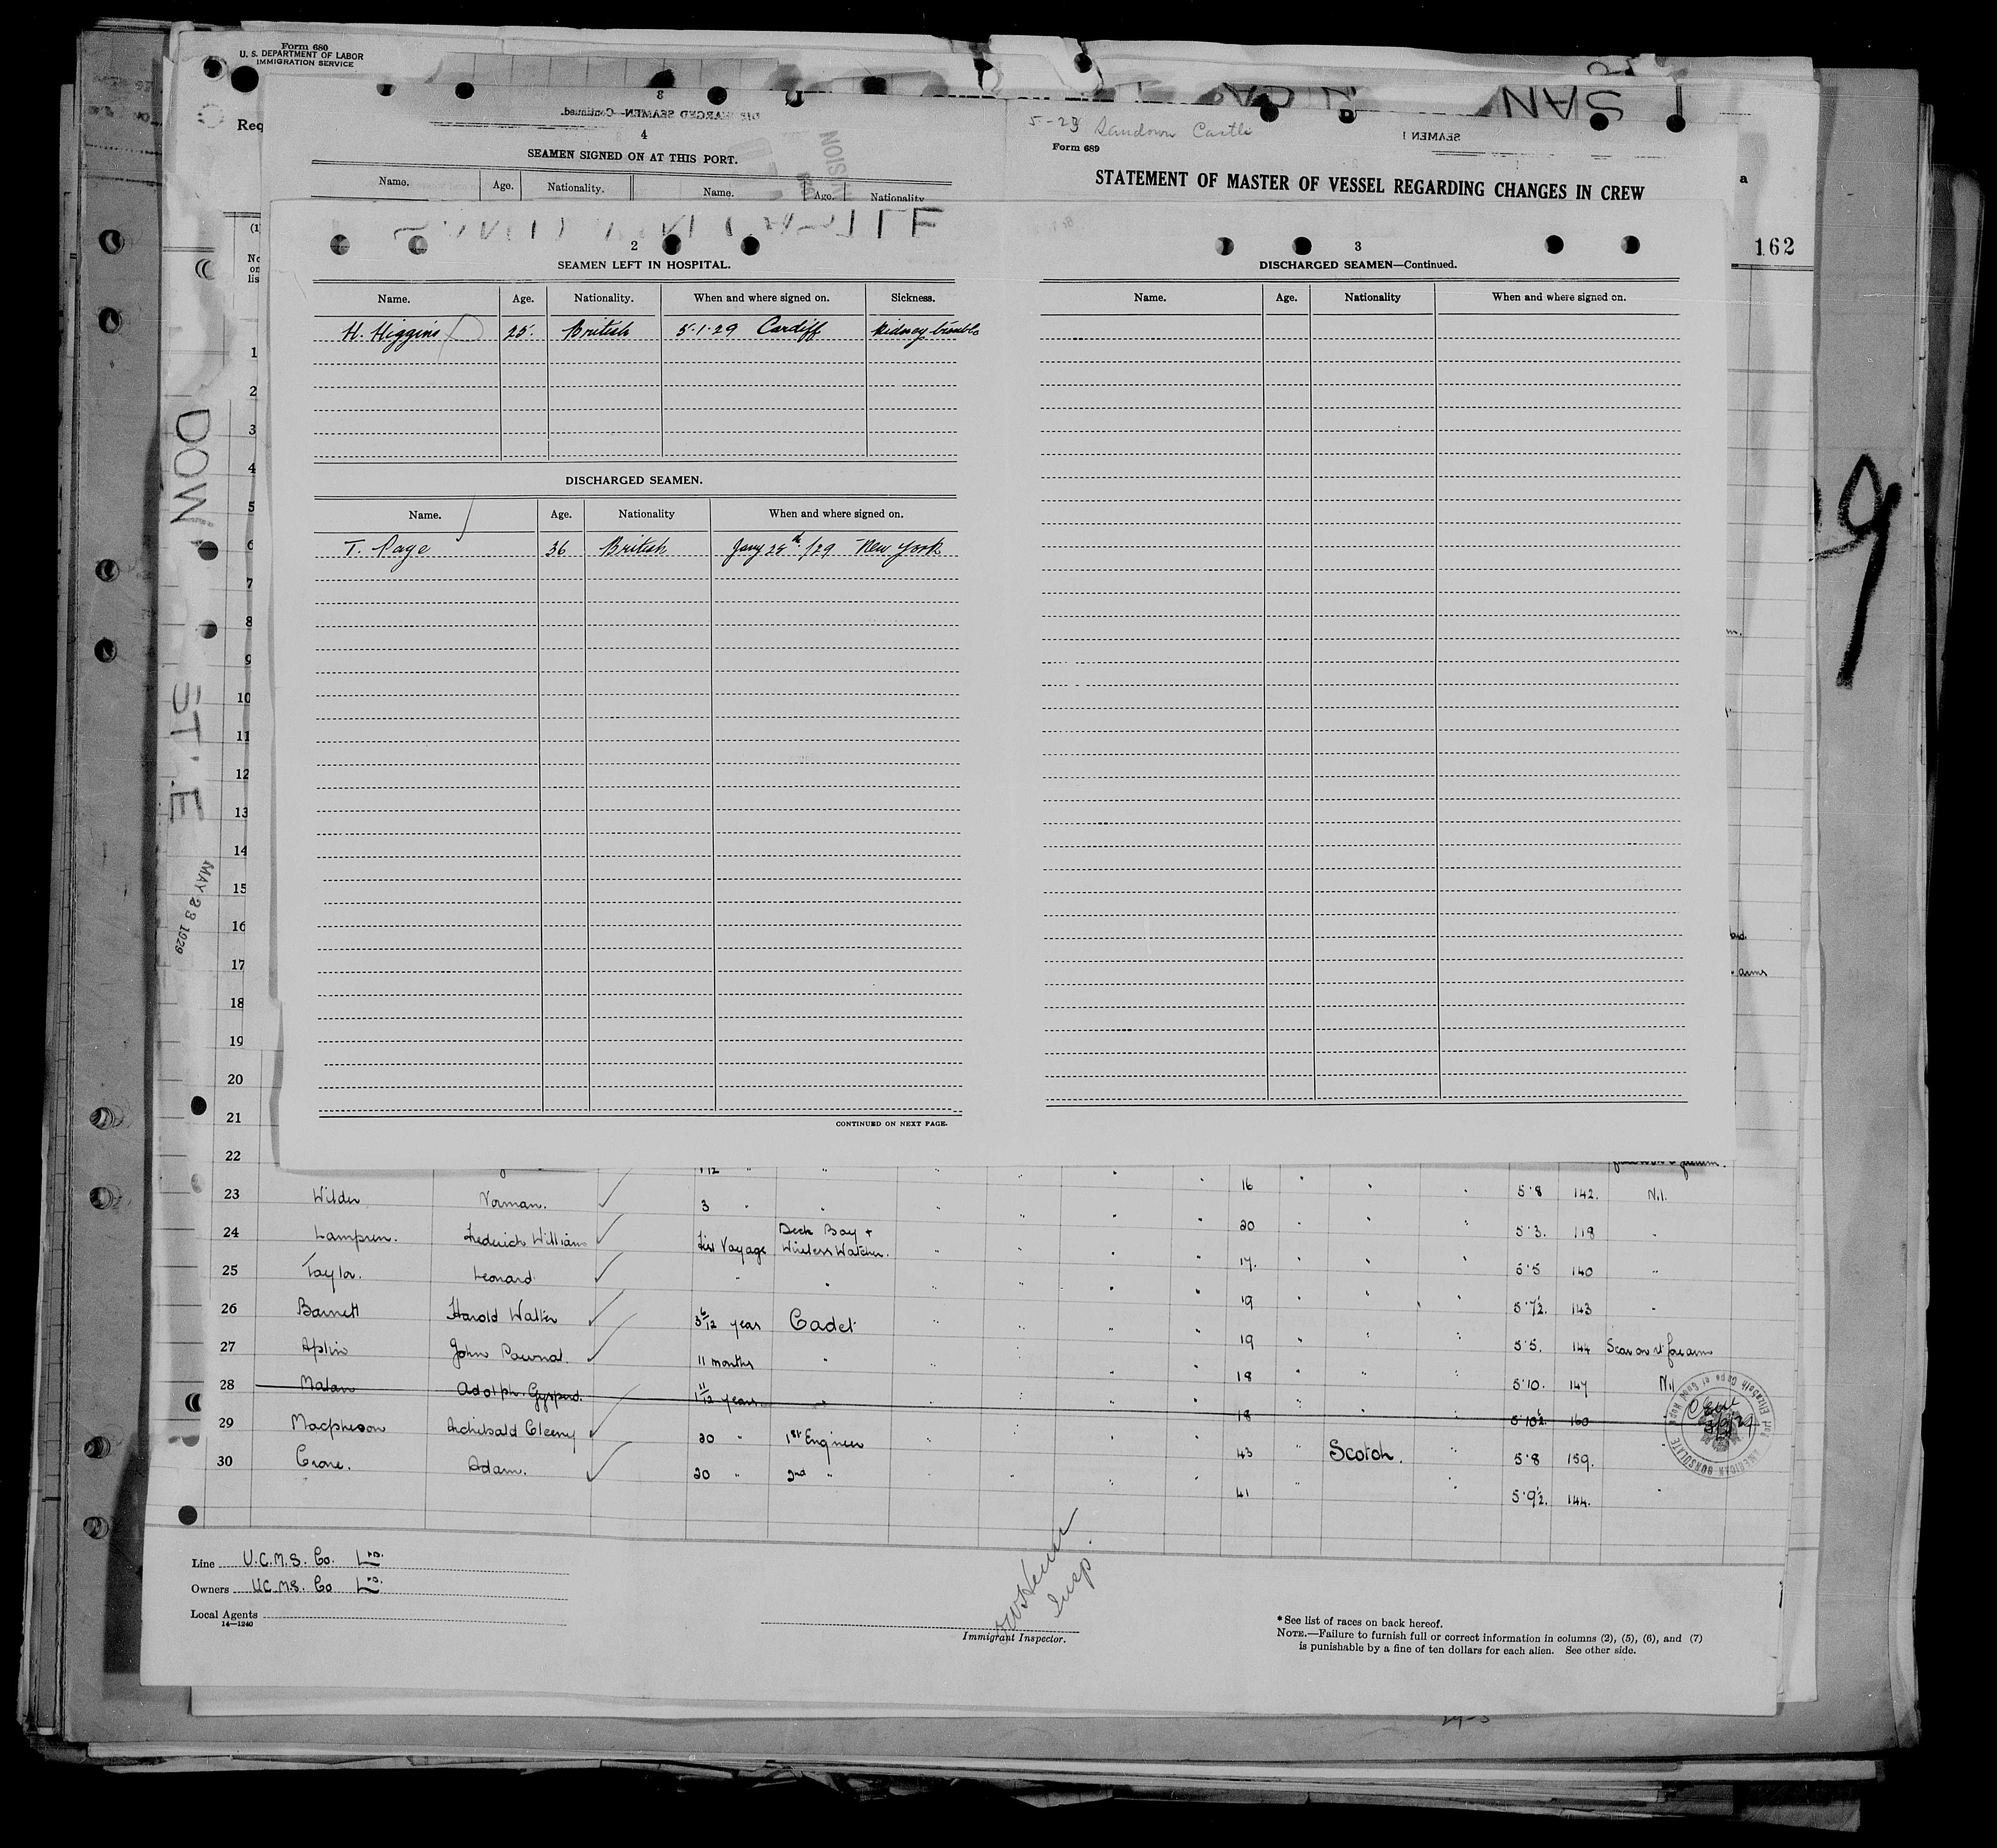 Form 680
U. S. DEPARTMENT OF LABOR
IMMIGRATION SERVICE
Req
8
DISCHARGED SEAMEN—Continued.
4
SEAMEN SIGNED ON AT THIS PORT.
Name. Age. Nationality. Name. Age. Nationality
SAN
SEAMEN
5-23 Sandown Castle
Form 689
STATEMENT OF MASTER OF VESSEL REGARDING CHANGES IN CREW
a
162
2
SEAMEN LEFT IN HOSPITAL.
Name. Age. Nationality. When and where signed on. Sickness.
H. Higgins 25. British 5.1.29 Cardiff Kidney trouble
DISCHARGED SEAMEN.
Name. Age. Nationality When and where signed on.
T. Page 36 British Jany 28th /29 New York
CONTINUED ON NEXT PAGE.
3
DISCHARGED SEAMEN—Continued.
Name. Age. Nationality When and where signed on.
(1)
No
on
lis
1
2
3
4
5
6
7
8
9
10
11
12
13
14
15
16
17
18
19
20
21
22
DOW
ST E
MAY 23 1929
arms
16 5.8 142. Nil.
23 Wilder Norman. 3 " " 20 5.3. 118 "
24 Lampren. Frederich William First Voyage Deck Boy + Wireless Watcher. 17. 5.5 140 "
25 Taylor. Leonard " " 19 5.7½. 143 "
26 Barnett Harold Walter 3 6/12 year Cadet 19 5.5. 144 Scar on rt forearm
27 Aplin John Pownal. 11 months " 18 5.10. 147 Nil
28 Malan Adolph. 1 11/12 years " 18 5.10½. 160
29 Macpherson Archibald Cleeny 20 " 1st Engineer 43 " Scotch. 5.8 159. "
30 Crone. Adam. 20 " 2nd " 41 " 5.9½. 144. "
AMERICAN CONSULATE
Line U.C.M.S. Co. LTD.
Owners U.C.M.S. Co LTD.
Local Agents
14—1240
Insp.
Immigrant Inspector.
* See list of races on back hereof.
NOTE.—Failure to furnish full or correct information in columns (2), (5), (6), and (7)
is punishable by a fine of ten dollars for each alien. See other side.